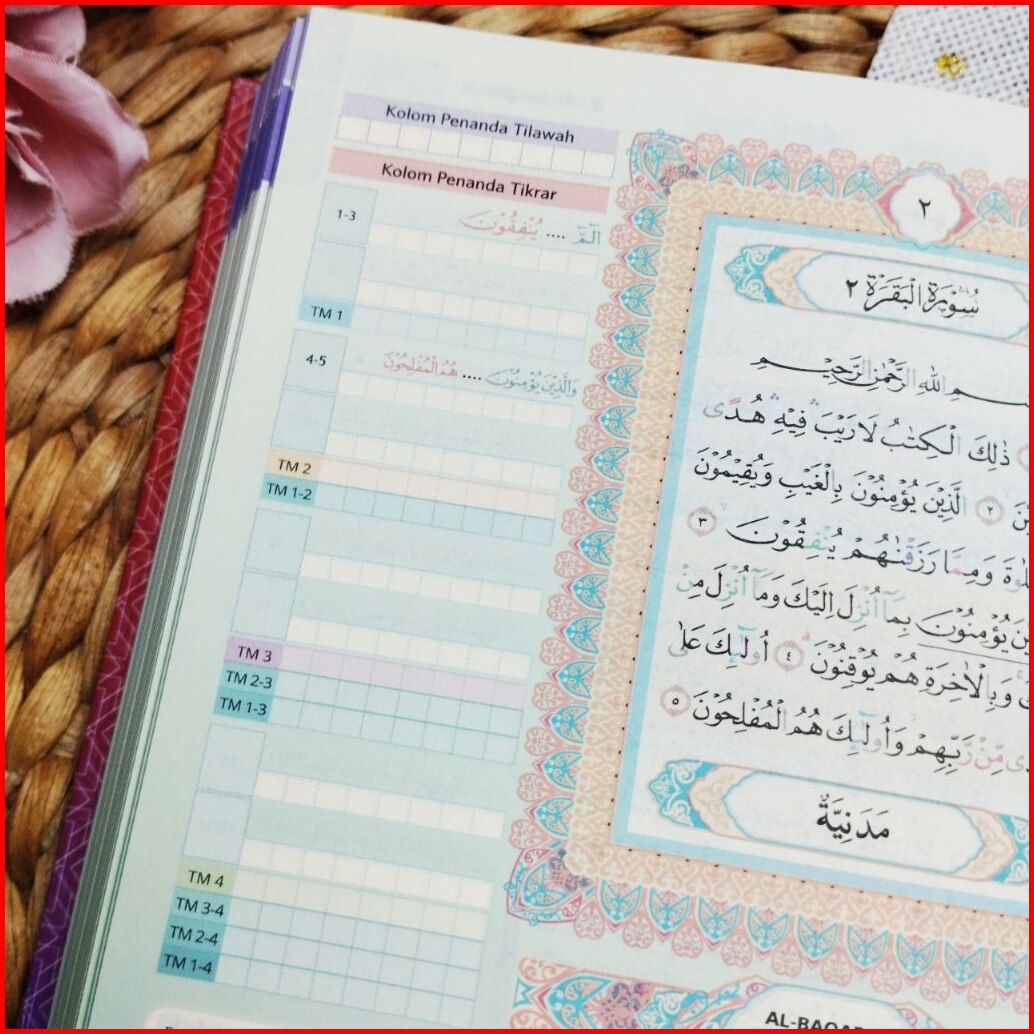 Kolom Penanda Tilawah
Kolom Penanda Tikrar
1-3
الٓمّٓ .... يُنْفِقُوْنَ
TM 1
4-5
وَالَّذِيْنَ يُؤْمِنُوْنَ .... هُمُ الْمُفْلِحُوْنَ
TM 2
TM 1-2
TM 3
TM 2-3
TM 1-3
TM 4
TM 3-4
TM 2-4
TM 1-4
٢
سُوْرَةُ الْبَقَرَةِ ٢
اللّٰهِ الرَّحْمٰنِ الرَّحِيْمِ
ذٰلِكَ الْكِتٰبُ لَا رَيْبَ ۛ فِيْهِ ۛ هُدًى
٢ الَّذِيْنَ يُؤْمِنُوْنَ بِالْغَيْبِ وَيُقِيْمُوْنَ
وَمِمَّا رَزَقْنٰهُمْ يُنْفِقُوْنَ ۙ ٣
يُؤْمِنُوْنَ بِمَآ اُنْزِلَ اِلَيْكَ وَمَآ اُنْزِلَ مِنْ
وَبِالْاٰخِرَةِ هُمْ يُوْقِنُوْنَ ۗ ٤ اُولٰۤىِٕكَ عَلٰى
مِّنْ رَّبِّهِمْ وَاُولٰۤىِٕكَ هُمُ الْمُفْلِحُوْنَ ٥
مَدَنِيَّةٌ